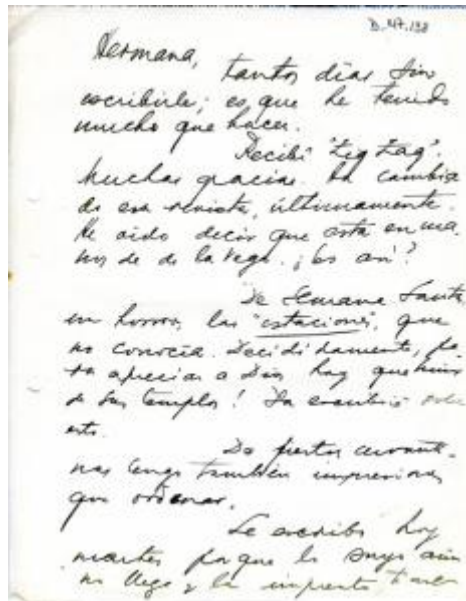 D.47.138
Hermana,
tantos días sin
escribirle; es que he tenido
mucho que hacer.
Recibí "Zig Zag".
Muchas gracias. Ha cambia
do esa revista, últimamente.
He oído decir que está en ma
nos de de la Vega. ¿Es así?
De Semana Santa
un horror, las "estaciones", que
no conocía. Decididamente, pa
ra apreciar a Dios hay que huir
de sus templos! Ya escribiré sobre
esto.
De fiestas cervanti-
nas tengo también impresiones
que ordenar.
Le escribo hoy
martes porque la suya aún
no llega y la imprenta